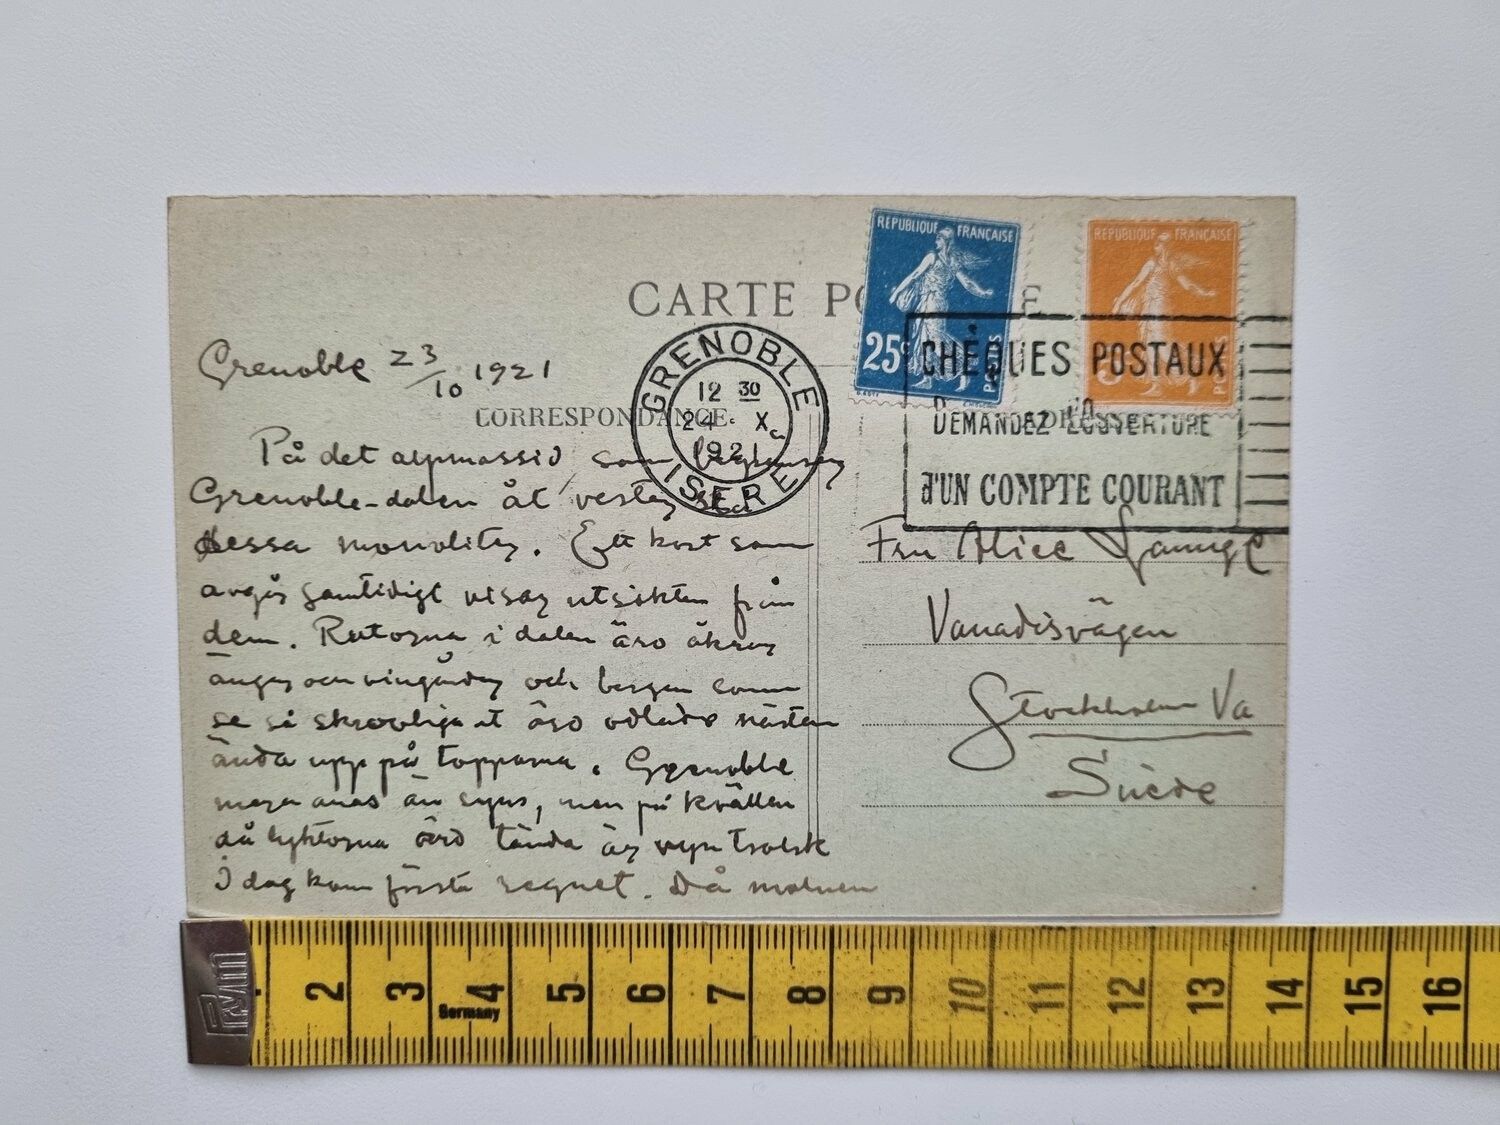 CARTE PO E
RÉPUBLIQUE FRANÇAISE
25c
POSTES
RÉPUBLIQUE FRANÇAISE
5
POSTES
GRENOBLE
12 30
24 X
1921
ISERE
CHÈQUES POSTAUX
DEMANDEZ L'OUVERTURE
d'UN COMPTE COURANT
Grenoble 23/10 1921
CORRESPONDANCE
På det alpmassiv, som begränsar
Grenoble-dalen åt vester
dessa monoliter. Ett kort som
avgår samtidigt visar utsikten från
dem. Rutorna i dalen äro åkrar
ängar och vingårdar och bergen som
se så skrovliga ut äro odlade nästan
ända upp på topparna. Grenoble
anas än synes, men på kvällen
då lyktorna äro tända är vyn trolsk
I dag kom första regnet. Då molnen
Fru Alice
Vanadisvägen
Stockholm Va
Suède
1 2 3 4 5 6 7 8 9 10 11 12 13 14 15 16
Germany